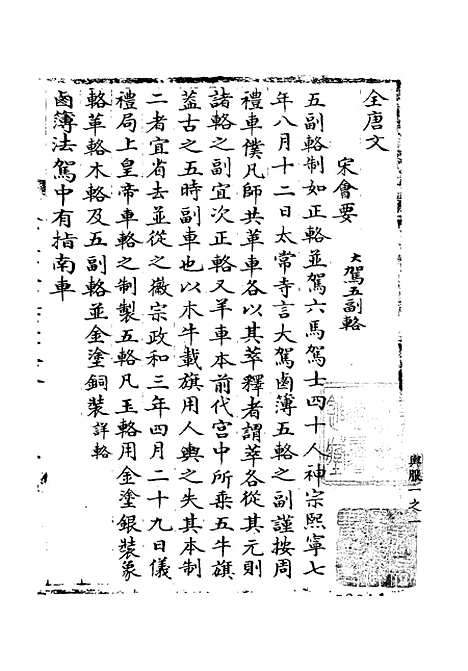 全唐文
宋會要
大駕五副輅
五副輅制如正輅並駕六馬駕士四十人神宗熙寧七
年八月十二日太常寺言大駕鹵簿五輅之副謹按周
禮車僕凡師共革車各以其萃釋者謂萃各從其元則
諸輅之副宜次正輅又羊車本前代宮中所乘五牛旗
蓋古之五時副車也以木牛載旗用人輿之失其本制
二者宜省去並從之徽宗政和三年四月二十九日儀
禮局上皇帝車輅之制製五輅凡玉輅用金塗銀裝象
輅革輅木輅及五副輅並金塗銅裝詳輅
鹵簿法駕中有指南車
輿服一之一